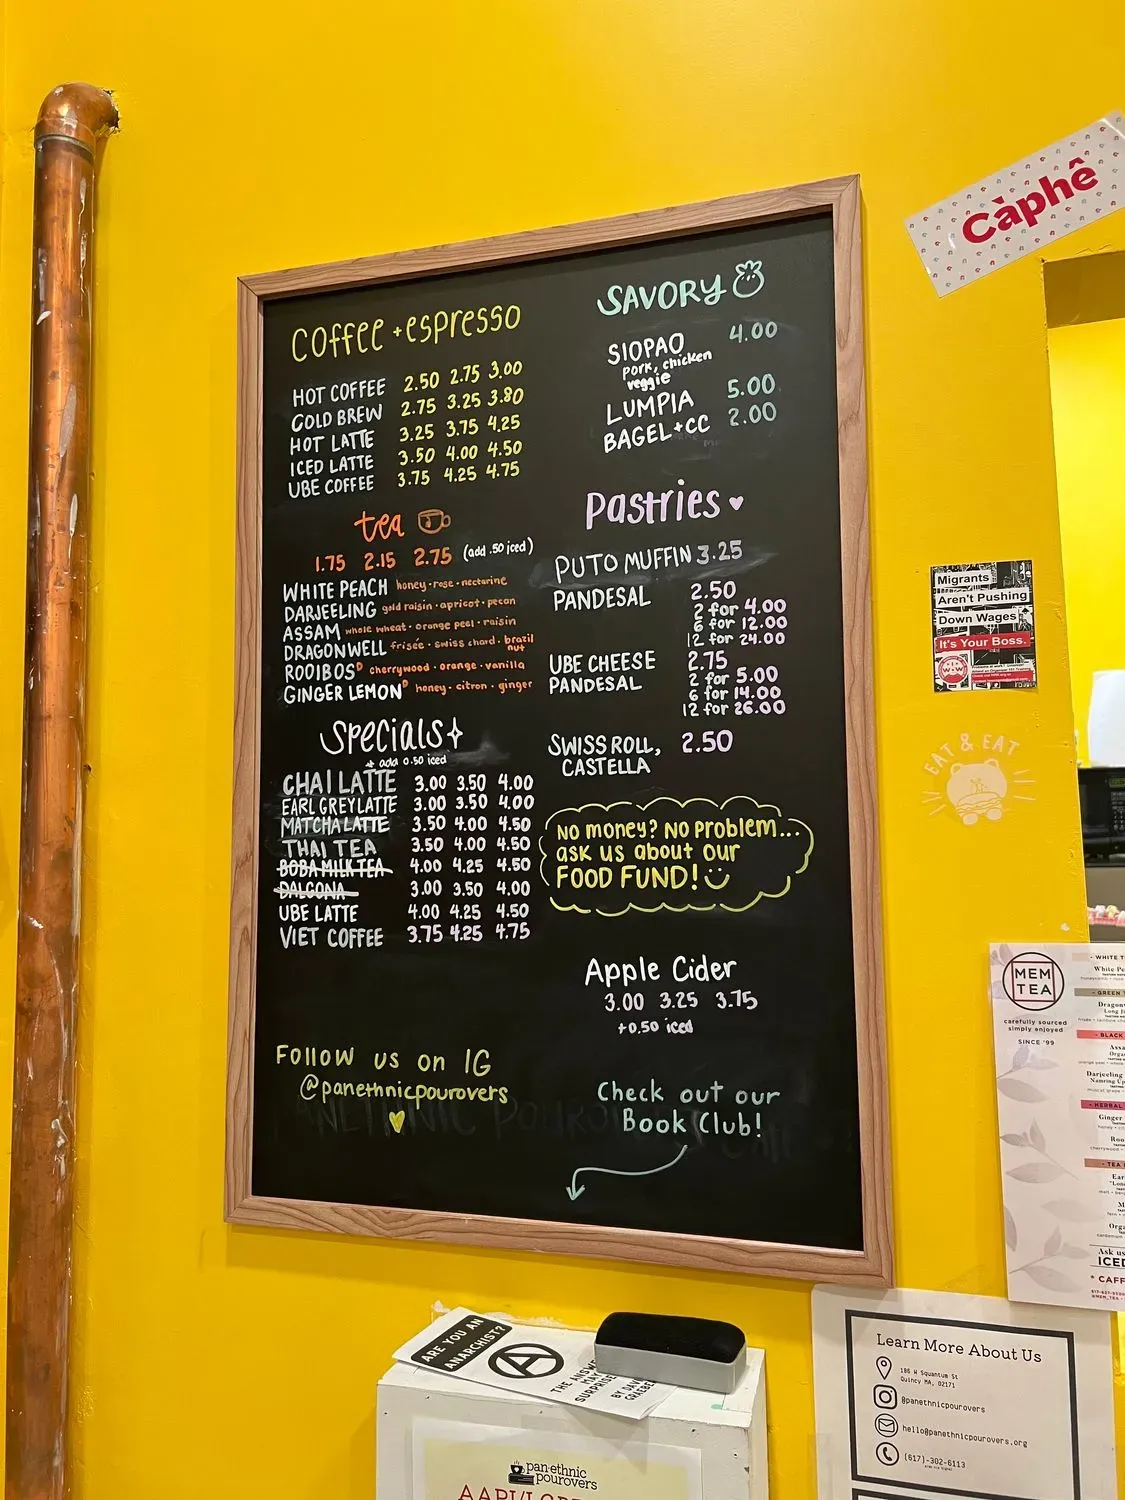 Càphê
coffee + espresso
HOT COFFEE 2.50 2.75 3.00
COLD BREW 2.75 3.25 3.80
HOT LATTE 3.25 3.75 4.25
ICED LATTE 3.50 4.00 4.50
UBE COFFEE 3.75 4.25 4.75
tea
1.75 2.15 2.75 (add .50 iced)
WHITE PEACH honey · rose · nectarine
DARJEELING gold raisin · apricot · pecan
ASSAM whole wheat · orange peel · raisin
DRAGONWELL frisée · swiss chard · brazil nut
ROOIBOS cherrywood · orange · vanilla
GINGER LEMON honey · citron · ginger
Specials
+ add 0.50 iced
CHAI LATTE 3.00 3.50 4.00
EARL GREY LATTE 3.00 3.50 4.00
MATCHA LATTE 3.50 4.00 4.50
THAI TEA 3.50 4.00 4.50
BOBA MILK TEA 4.00 4.25 4.50
DALGONA 3.00 3.50 4.00
UBE LATTE 4.00 4.25 4.50
VIET COFFEE 3.75 4.25 4.75
Follow us on IG
@panethnicpourovers
SAVORY
SIOPAO 4.00
pork, chicken
veggie
LUMPIA 5.00
BAGEL + CC 2.00
Pastries
PUTO MUFFIN 3.25
PANDESAL 2.50
2 for 4.00
6 for 12.00
12 for 24.00
UBE CHEESE 2.75
PANDESAL 2 for 5.00
6 for 14.00
12 for 26.00
SWISS ROLL, 2.50
CASTELLA
No money? No problem...
ask us about our
FOOD FUND!
Apple Cider
3.00 3.25 3.75
+0.50 iced
Check out our
Book Club!
Migrants
Aren't Pushing
Down Wages
It's Your Boss.
EAT & EAT
MEM
TEA
carefully sourced
simply enjoyed
SINCE '99
ARE YOU AN
ANARCHIST?
THE ANSWER
MAY
SURPRISE
BY DAVID
GRAEBER
pan·ethnic
pourovers
Learn More About Us
186 W Squantum St
Quincy MA, 02171
@panethnicpourovers
hello@panethnicpourovers.org
(617)-302-6113